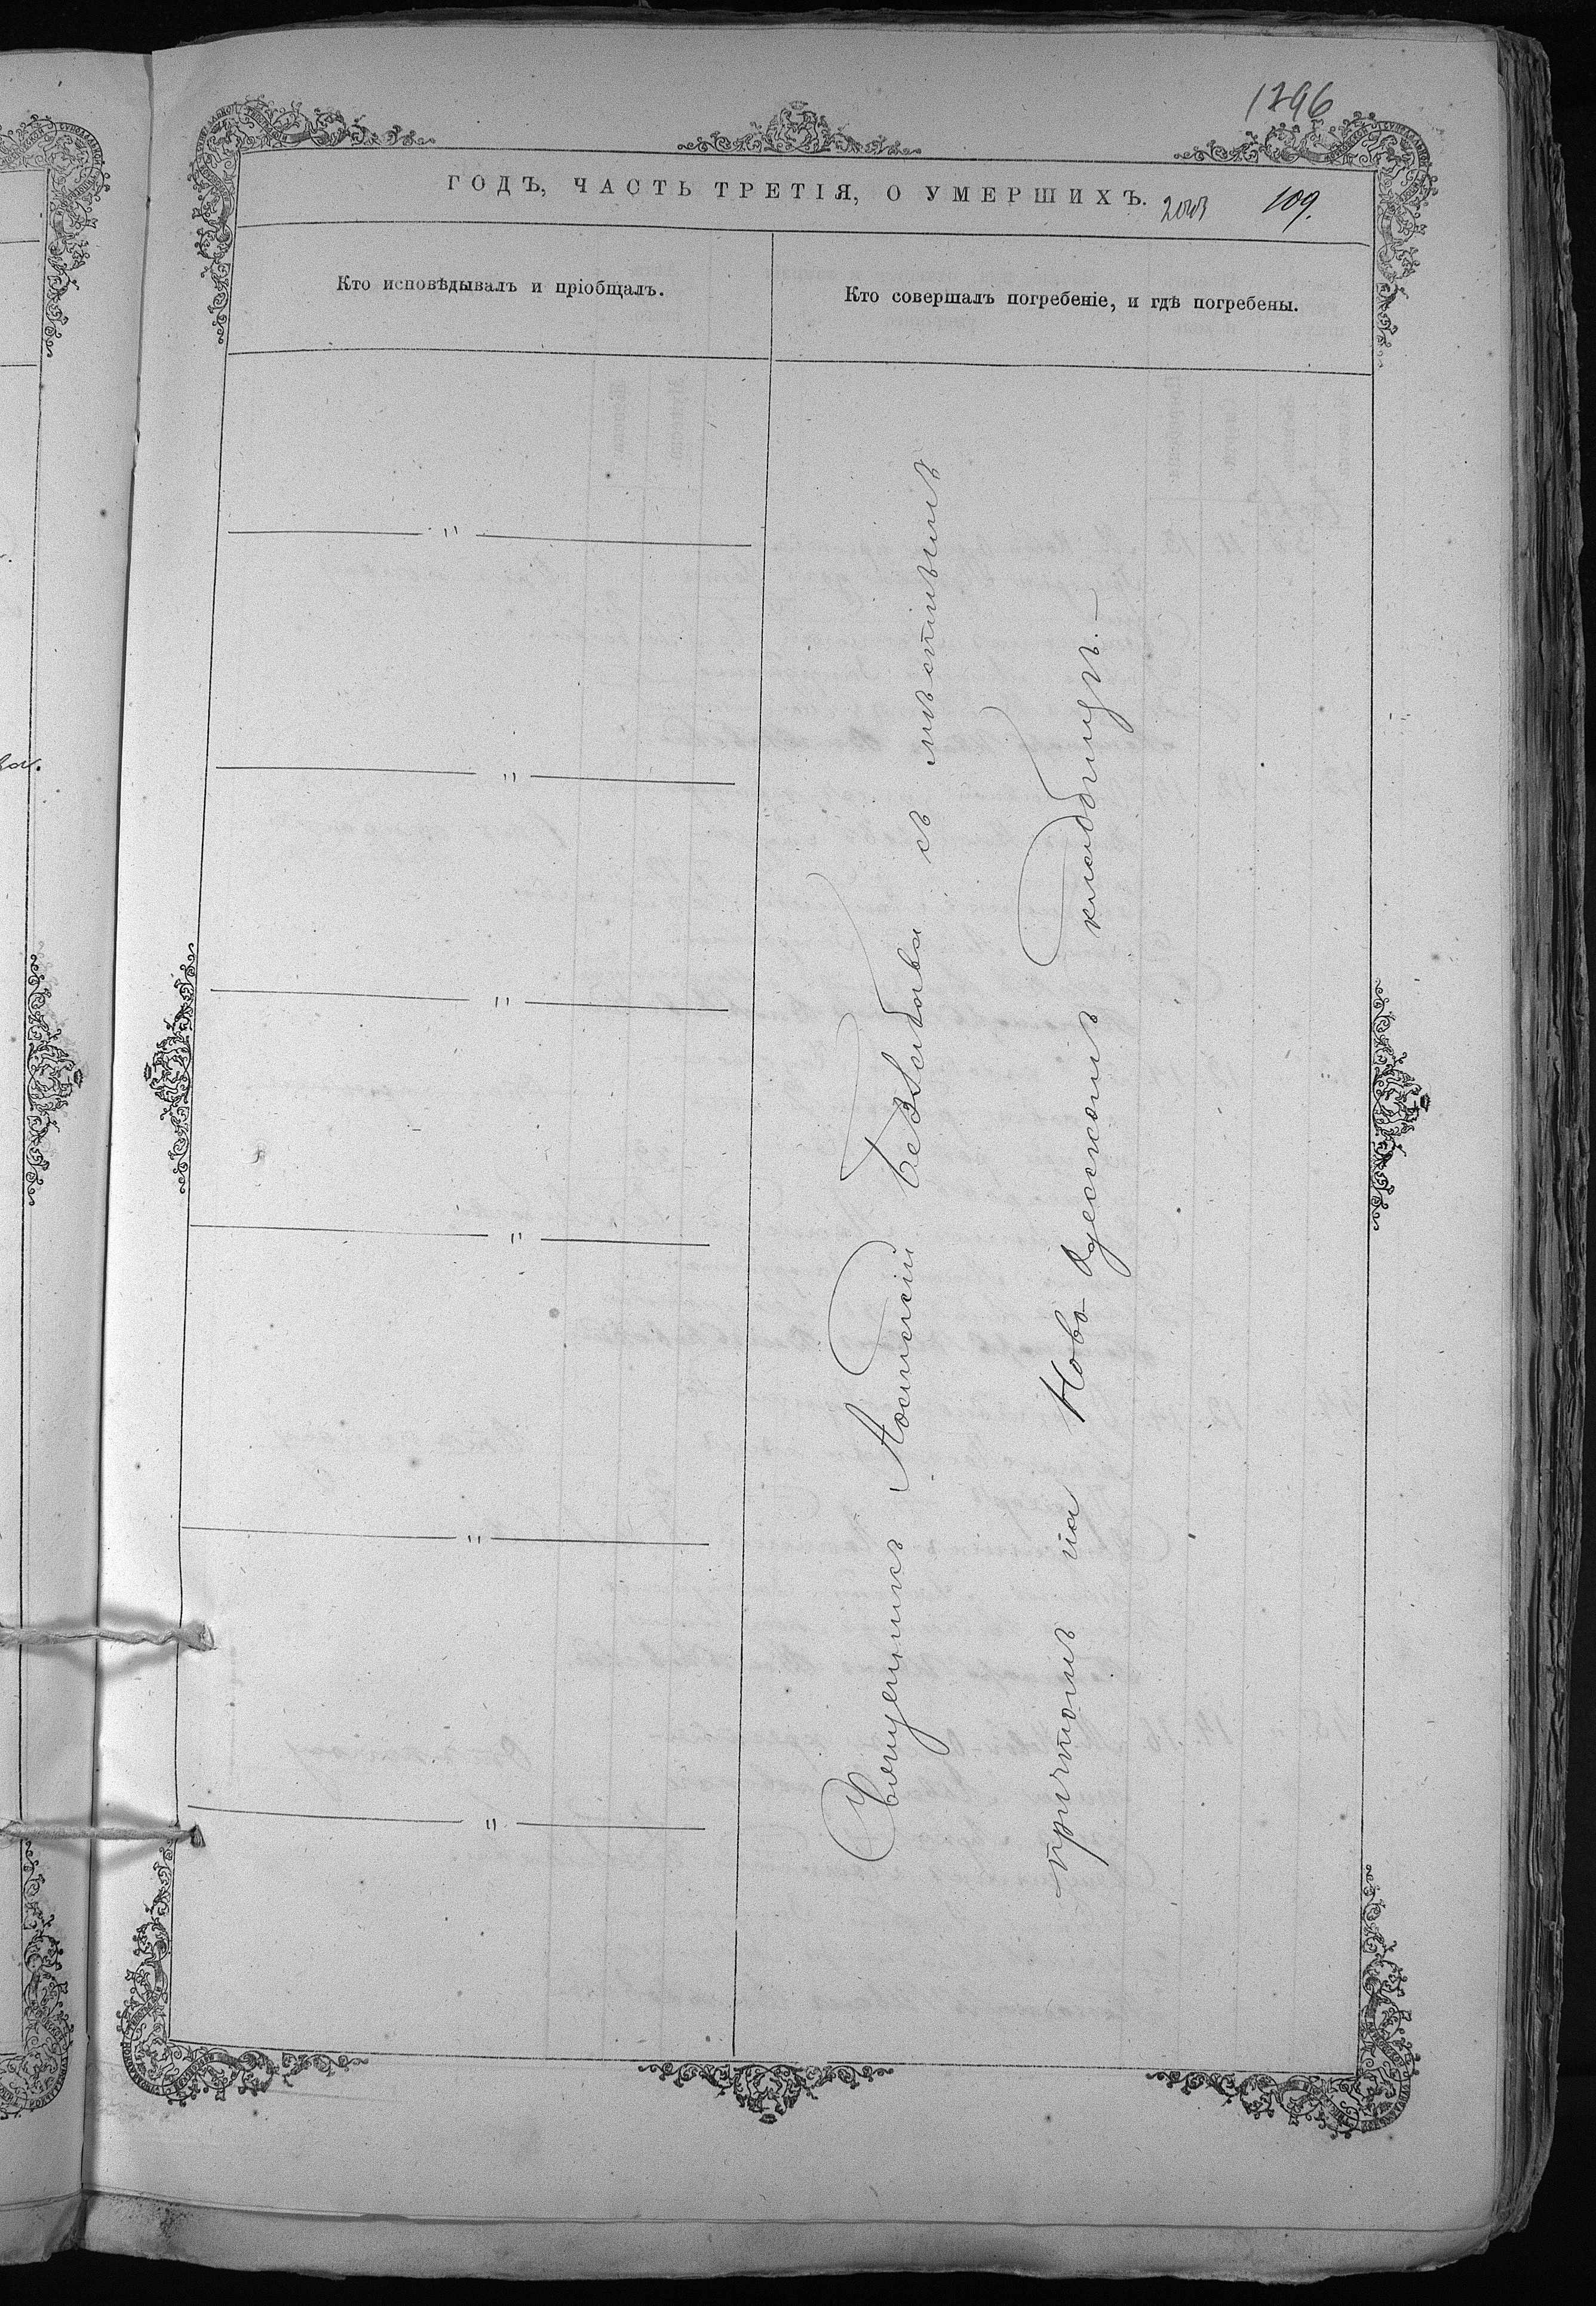 1296
ГОДЪ, ЧАСТЬ ТРЕТІЯ, О УМЕРШИХЪ.
109.
Кто исповѣдывалъ и пріобщалъ.
Кто совершалъ погребеніе, и гдѣ погребены.
"
"
"
"
"
"
Священникъ Безсабава съ мѣстнымъ
причтомъ на Ново-Одесскомъ кладбищѣ.—